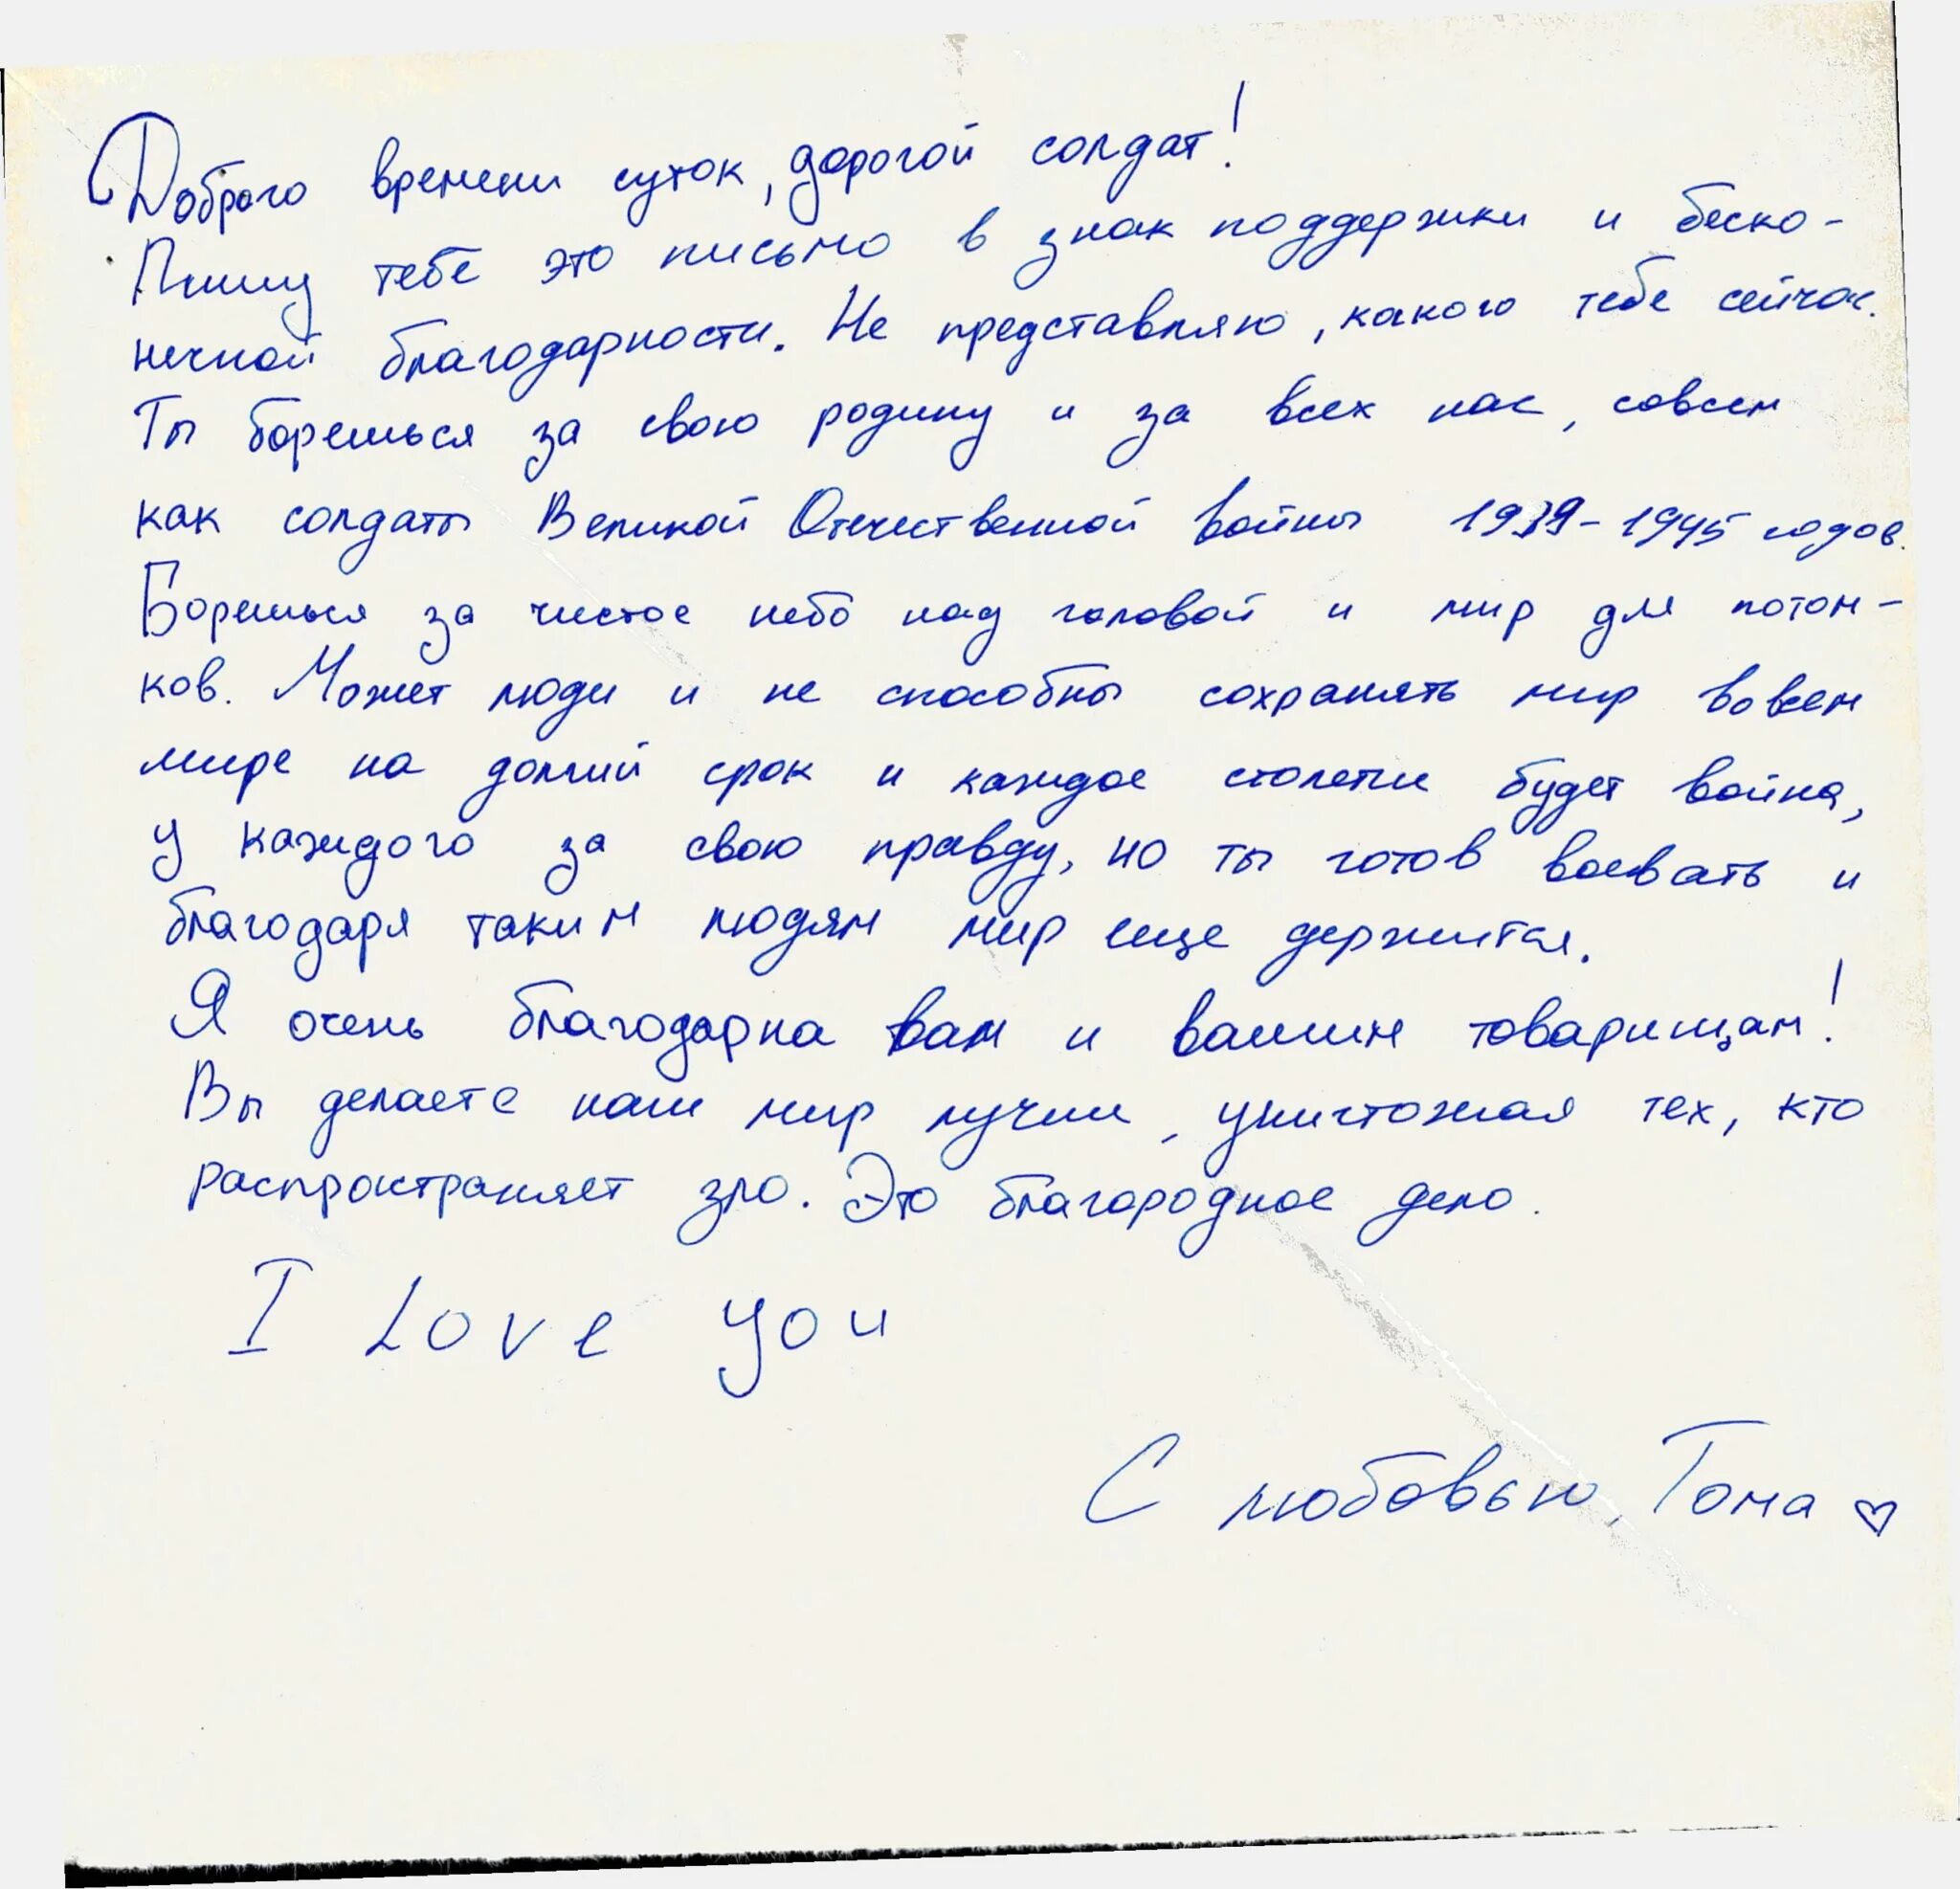 Доброго времени суток, дорогой солдат!
Пишу тебе это письмо в знак поддержки и беско-
нечной благодарности. Не представляю, какого тебе сейчас.
Ты борешься за свою родину и за всех нас, совсем
как солдаты Великой Отечественной войны 1939-1945 годов.
Борешься за чистое небо над головой и мир для потом-
ков. Может люди и не способны сохранять мир во всем
мире на долгий срок и каждое столетие будет война,
у каждого за свою правду, но ты готов воевать и
благодаря таким людям мир еще держится.
Я очень благодарна вам и вашим товарищам!
Вы делаете наш мир лучше, уничтожая тех, кто
распространяет зло. Это благородное дело.
I Love you
С любовью, Тома ♡